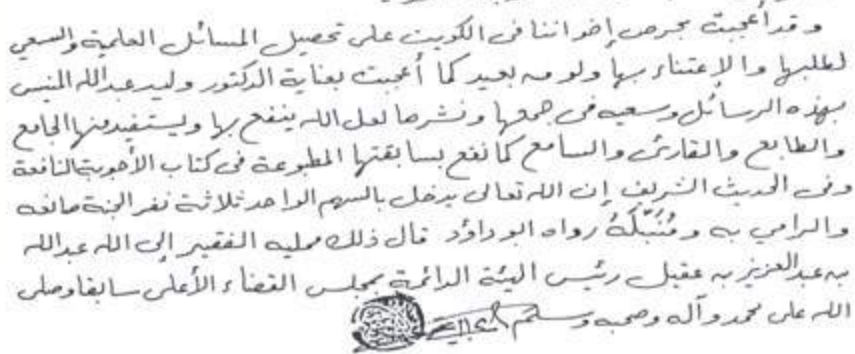 وقد أعجبت بحرص إخواننا في الكويت على تحصيل المسائل العلمية والسعي
لطلبها والإعتناء بها ولو من بعيد كما أعجبت بعناية الدكتور وليد عبدالله المنيس
بهذه الرسائل وسعيه في جمعها ونشرها لعل الله ينفع بها ويستفيد منها الجامع
والطابع والقارئ والسامع كما نفع بسابقتها المطبوعة في كتاب الأجوبة النافعة
وفي الحديث الشريف إن الله تعالى يدخل بالسهم الواحد ثلاثة نفر الجنة صانعه
والرامي به ومُنَبِّلَهُ رواه ابوداؤد قال ذلك ممليه الفقير إلى الله عبدالله
بن عبدالعزيز بن عقيل رئيس الهيئة الدائمة بمجلس القضاء الأعلى سابقا وصلى
الله على محمد وآله وصحبه وسلم